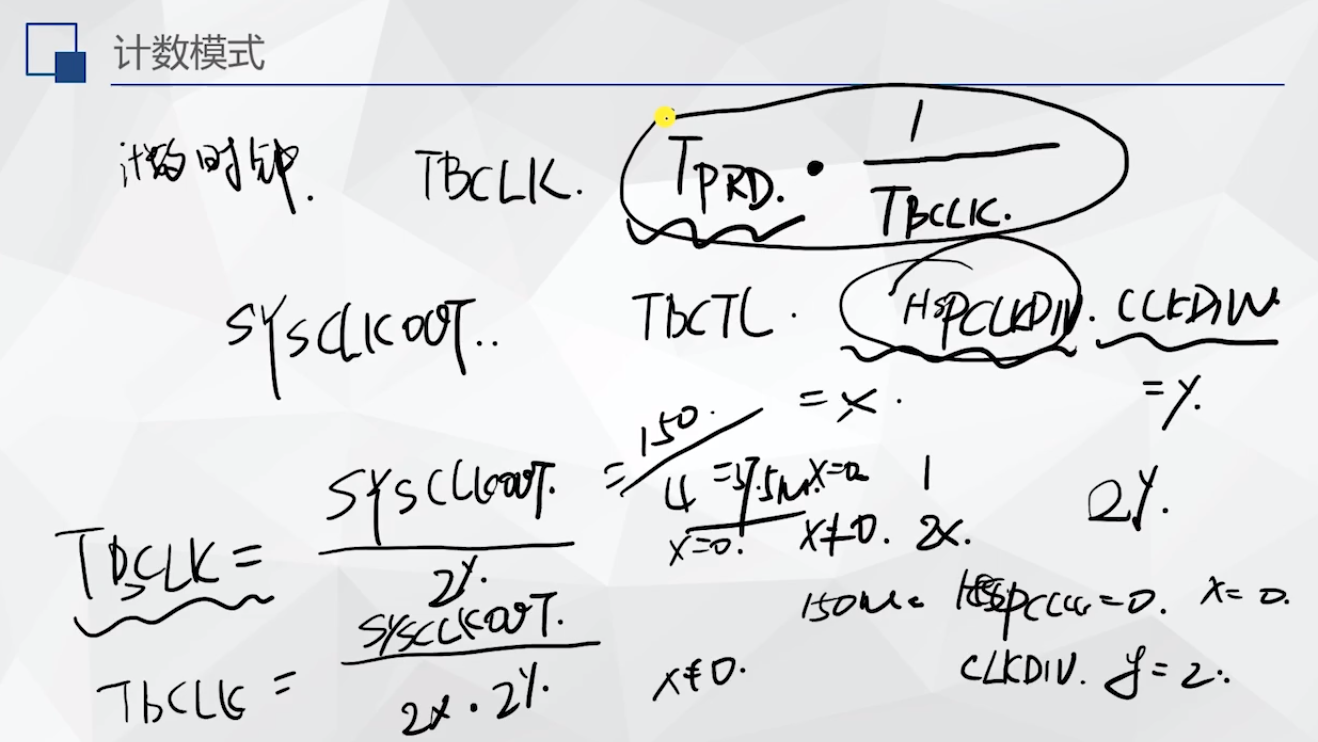 计数模式
计数时钟. TBCLK. TPRD. • 1 / TBCLK.
SYSCLKOUT.. TBCTL. HSPCLKDIV. CLKDIV.
= x. = y.
TBCLK = SYSCLKOUT. / 2y. = 150. / 4 = 37.5M x=0. x=0 1 2y.
x≠0. 2x.
150M. =0. x=0.
TBCLK = SYSCLKOUT. / 2x • 2y. x≠0. CLKDIV. y=2.